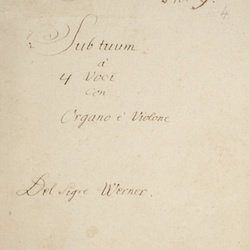 Sub tuum
à
4 Voci
Con
Organo è Violone
Del Sigre Werner.